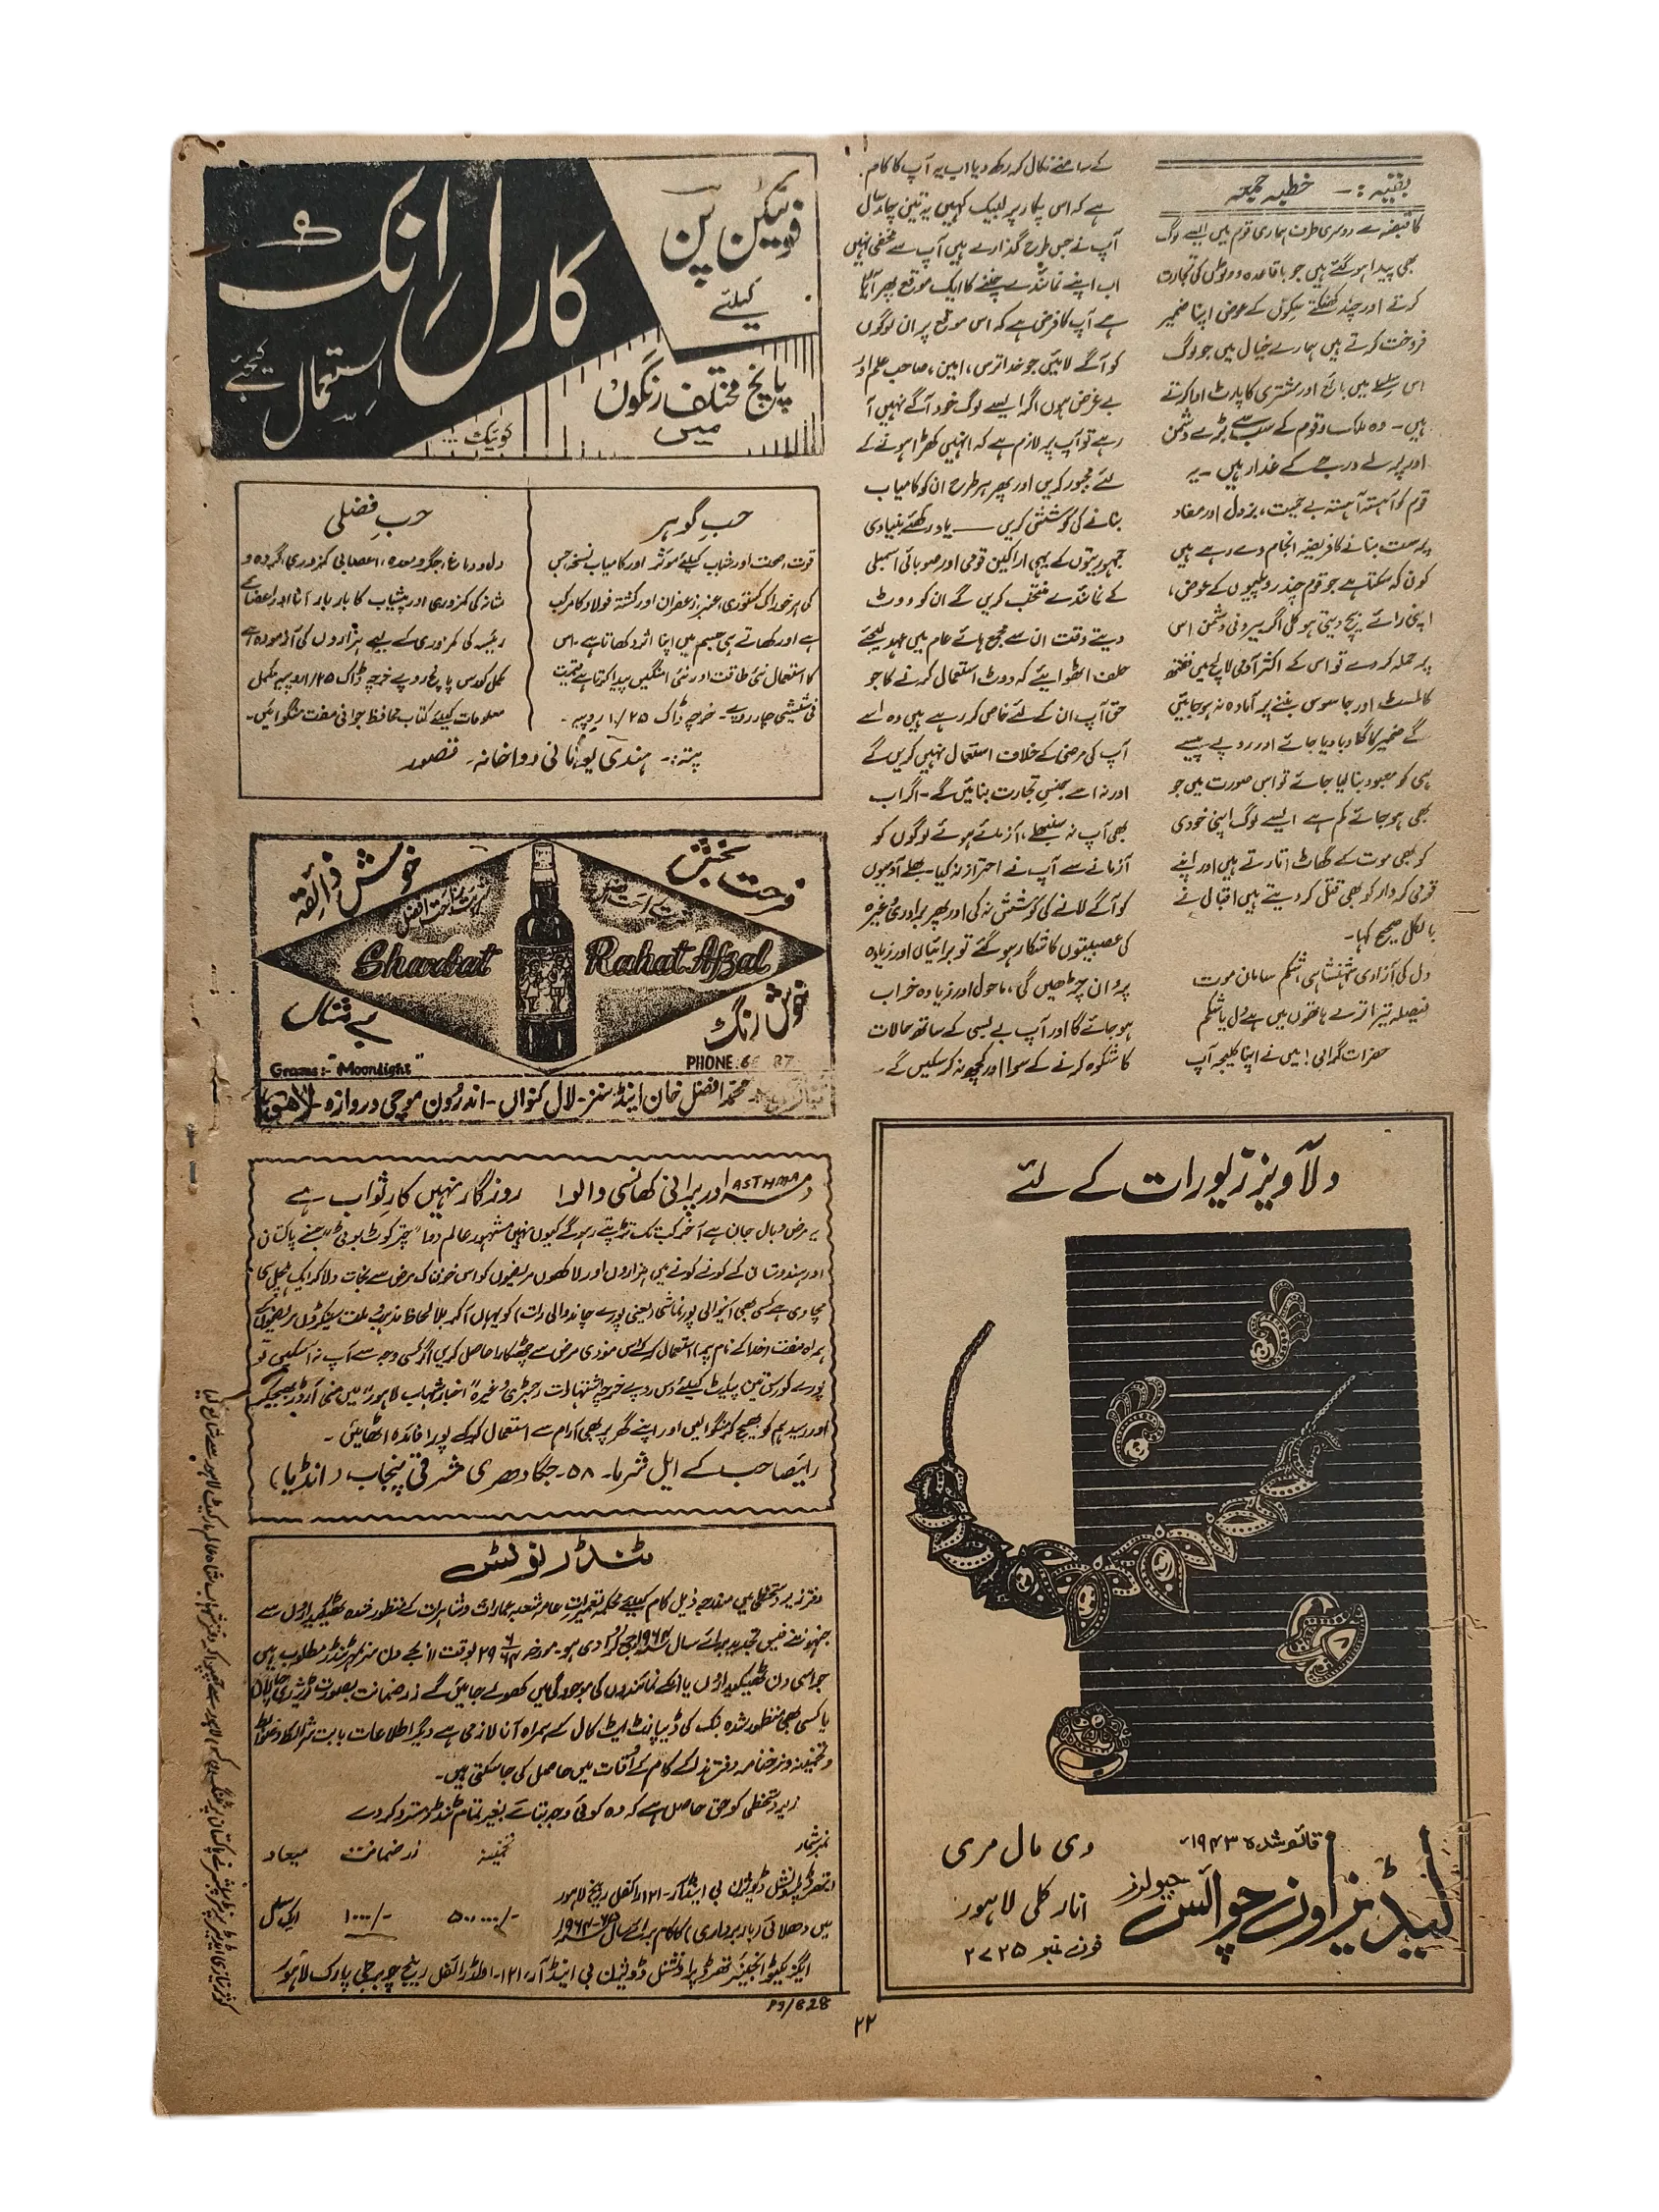 بقیہ :- خطبہ جمعہ
کا قبضہ ہے دوسری طرف ہماری قوم میں ایسے لوگ
بھی پیدا ہو گئے ہیں جو باقاعدہ ووٹوں کی تجارت
کرتے اور چند کھنکتے سکوں کے عوض اپنا ضمیر
فروخت کرتے ہیں ہمارے خیال میں جو لوگ
اس سلسلے میں بائع اور مشتری کا پارٹ ادا کرتے
ہیں۔ وہ ملک و قوم کے سب سے بڑے دشمن
اور پرلے درجے کے غدار ہیں۔ یہ
قوم کو آہستہ آہستہ بے حمیت، بزدل اور مفاد
پرست بنانے کا فریضہ انجام دے رہے ہیں
کون کہ سکتا ہے جو قوم چند روپلیوں کے عوض،
اپنی رائے بیچ دیتی ہو کل اگر بیرونی دشمن اس
پر حملہ کر دے تو اس کے اکثر آدمی لالچ میں ففتھ
کالمسٹ اور جاسوس بننے پر آمادہ نہ ہو جائیں
گے ضمیر کا گلا دبا دیا جائے اور روپے پیسے
ہی کو معبود بنا لیا جائے تو اس صورت میں جو
بھی ہو جائے کم ہے ایسے لوگ اپنی خودی
کو بھی موت کے گھاٹ اتارتے ہیں اور اپنے
قومی کردار کو بھی قتل کر دیتے ہیں اقبال نے
بالکل صحیح کہا۔
دل کی آزادی شہنشاہی شکم سامان موت
فیصلہ تیرا ترے ہاتھوں میں ہے دل یا شکم
حضرات گرامی! میں نے اپنا کلیجہ آپ
کے سامنے نکال کر رکھ دیا اب یہ آپ کا کام
ہے کہ اس پکار پر لبیک کہیں یہ تین چار سال
آپ نے جس طرح گذارے ہیں آپ سے مخفی نہیں
اب اپنے نمائندے چننے کا ایک موقع پھر آیا
ہے آپ کا فرض ہے کہ اس موقع پر ان لوگوں
کو آگے لائیں جو خدا ترس، امین، صاحب علم اور
بے غرض ہوں اگر ایسے لوگ خود آگے نہیں آ
رہے تو آپ پر لازم ہے کہ انہیں کھڑا ہونے کے
لئے مجبور کریں اور پھر ہر طرح ان کو کامیاب
بنانے کی کوشش کریں — یاد رکھئے بنیادی
جمہوریتوں کے یہی اراکین قومی اور صوبائی اسمبلی
کے نمائندے منتخب کریں گے ان کو ووٹ
دیتے وقت ان سے مجمع ہائے عام میں عہد لیجئے
حلف اٹھوایئے کہ ووٹ استعمال کرنے کا جو
حق آپ ان کے لئے خاص کر رہے ہیں وہ اسے
آپ کی مرضی کے خلاف استعمال نہیں کریں گے
اور نہ اسے جنس تجارت بنائیں گے۔ اگر اب
بھی آپ نہ سنبھلے، آزمائے ہوئے لوگوں کو
آزمانے سے آپ نے احتراز نہ کیا۔ بھلے آدمیوں
کو آگے لانے کی کوشش نہ کی اور پھر برادری وغیرہ
کی عصبیتوں کا شکار ہو گئے تو برائیاں اور زیادہ
پروان چڑھیں گی، ماحول اور زیادہ خراب
ہو جائے گا اور آپ بے بسی کے ساتھ حالات
کا شکوہ کرنے کے سوا اور کچھ نہ کر سکیں گے۔
دلآویز زیورات کے لئے
قائم شدہ ۱۹۴۳ء
لیڈیز اون چوائس جیولرز
دی مال مری
انارکلی لاہور
فون نمبر ۲۷۲۵
فونٹین پن
کیلئے
کارل انک
استعمال کیجئے
پانچ مختلف رنگوں
میں
حب گوہر
قوت، صحت اور شباب کیلئے موثر اور کامیاب نسخہ جس
کی ہر خوراک کستوری، عنبر، زعفران اور کشتہ فولاد کا مرکب
ہے اور کھاتے ہی جسم میں اپنا اثر دکھاتا ہے۔ اس
کا استعمال نئی طاقت اور نئی امنگیں پیدا کرتا ہے قیمت
فی شیشی چار روپے۔ خرچہ ڈاک ۱/۲۵ روپیہ۔
حب فضلی
دل و دماغ، جگر و معدہ، اعصابی کمزوری، گردہ و
مثانہ کی کمزوری اور پیشاب کا بار بار آنا اور اعضائے
رئیسہ کی کمزوری کے لیے ہزاروں کی آزمودہ ہے
مکمل کورس پانچ روپے خرچہ ڈاک ۱/۲۵ روپیہ مکمل
معلومات کیلئے کتاب محافظ جوانی مفت منگوائیں۔
پتہ:- ہندی یونانی دواخانہ۔ قصور
فرحت بخش
خوش ذائقہ
شربت راحت افضل
Sharbat Rahat Afzal
خوش رنگ
بے مثال
Grams:- "Moonlight"
PHONE.
محمد افضل خان اینڈ سنز۔ لال کنواں۔ اندرون موچی دروازہ۔ لاہور
دمہ ASTHMA اور پرانی کھانسی والو! روزگار نہیں کار ثواب ہے
یہ مرض وبال جان ہے آخر کب تک تڑپتے رہو گے کیوں نہیں مشہور عالم دوا "چترکوٹ بوٹی" جسنے پاکستان
اور ہندوستان کے کونے کونے میں ہزاروں اور لاکھوں مریضوں کو اس خوفناک مرض سے نجات دلا کر ایک ہلچل سی
مچا دی ہے کسی بھی آنیوالی پورنماشی (یعنی پورے چاند والی رات) کو یہاں آکر بلا لحاظ مذہب و ملت سینکڑوں مریضوں کے
ہمراہ مفت (خدا کے نام پر) استعمال کرکے اس موذی مرض سے چھٹکارا حاصل کریں اگر کسی وجہ سے آپ نہ آسکیں تو
پورے کورس تین پیکٹ کیلئے دس روپے خرچہ اشتہارات رجسٹری وغیرہ "اخبار شہاب لاہور" میں منی آرڈر بھیجکر
اور رسید ہم کو بھیج کر منگوائیں اور اپنے گھر پر بھی آرام سے استعمال کرکے پورا فائدہ اٹھائیں۔
رائے صاحب کے ایل شرما۔ ۵۸۔ جگادھری مشرقی پنجاب (انڈیا)
ٹنڈر نوٹس
دفتر زیر دستخطی میں مندرجہ ذیل کام کیلئے محکمہ تعمیرات عامہ شعبہ عمارات و شاہرات کے منظور شدہ ٹھیکیداروں سے
جنہوں نے فیس تجدید برائے سال ۱۹۶۴ء جمع کرا دی ہو۔ مورخہ ۲۹/۶/۶۴ بوقت ۱۱ بجے دن سر بمہر ٹنڈر مطلوب ہیں
جو اسی دن ٹھیکیداروں یا انکے نمائندوں کی موجودگی میں کھولے جائیں گے زر ضمانت بصورت ٹریژری چالان
یا کسی بھی منظور شدہ بنک کی ڈیپازٹ ایٹ کال کے ہمراہ آنا لازمی ہے دیگر اطلاعات بابت شرائط و ضوابط
و تخمینہ و نرخنامہ دفتر ہذا کے کام کے اوقات میں حاصل کی جاسکتی ہیں۔
زیر دستخطی کو حق حاصل ہے کہ وہ کوئی وجہ بتائے بغیر تمام ٹنڈر مسترد کر دے
نمبر شمار تخمینہ زر ضمانت میعاد
تھرڈ پراونشل ڈویژن بی اینڈ آر۔ ۱۲۱ رائفل رینج لاہور
میں دھلائی (باربرداری) کا کام برائے سال ۶۵-۱۹۶۴ ۵۰،۰۰۰/- ۱۰۰۰/- ایک سال
ایگزیکٹو انجینئر تھرڈ پراونشل ڈویژن بی اینڈ آر، ۱۲۱۔ اولڈ رائفل رینج چوبرجی پارک لاہور
P9/828
۲۲